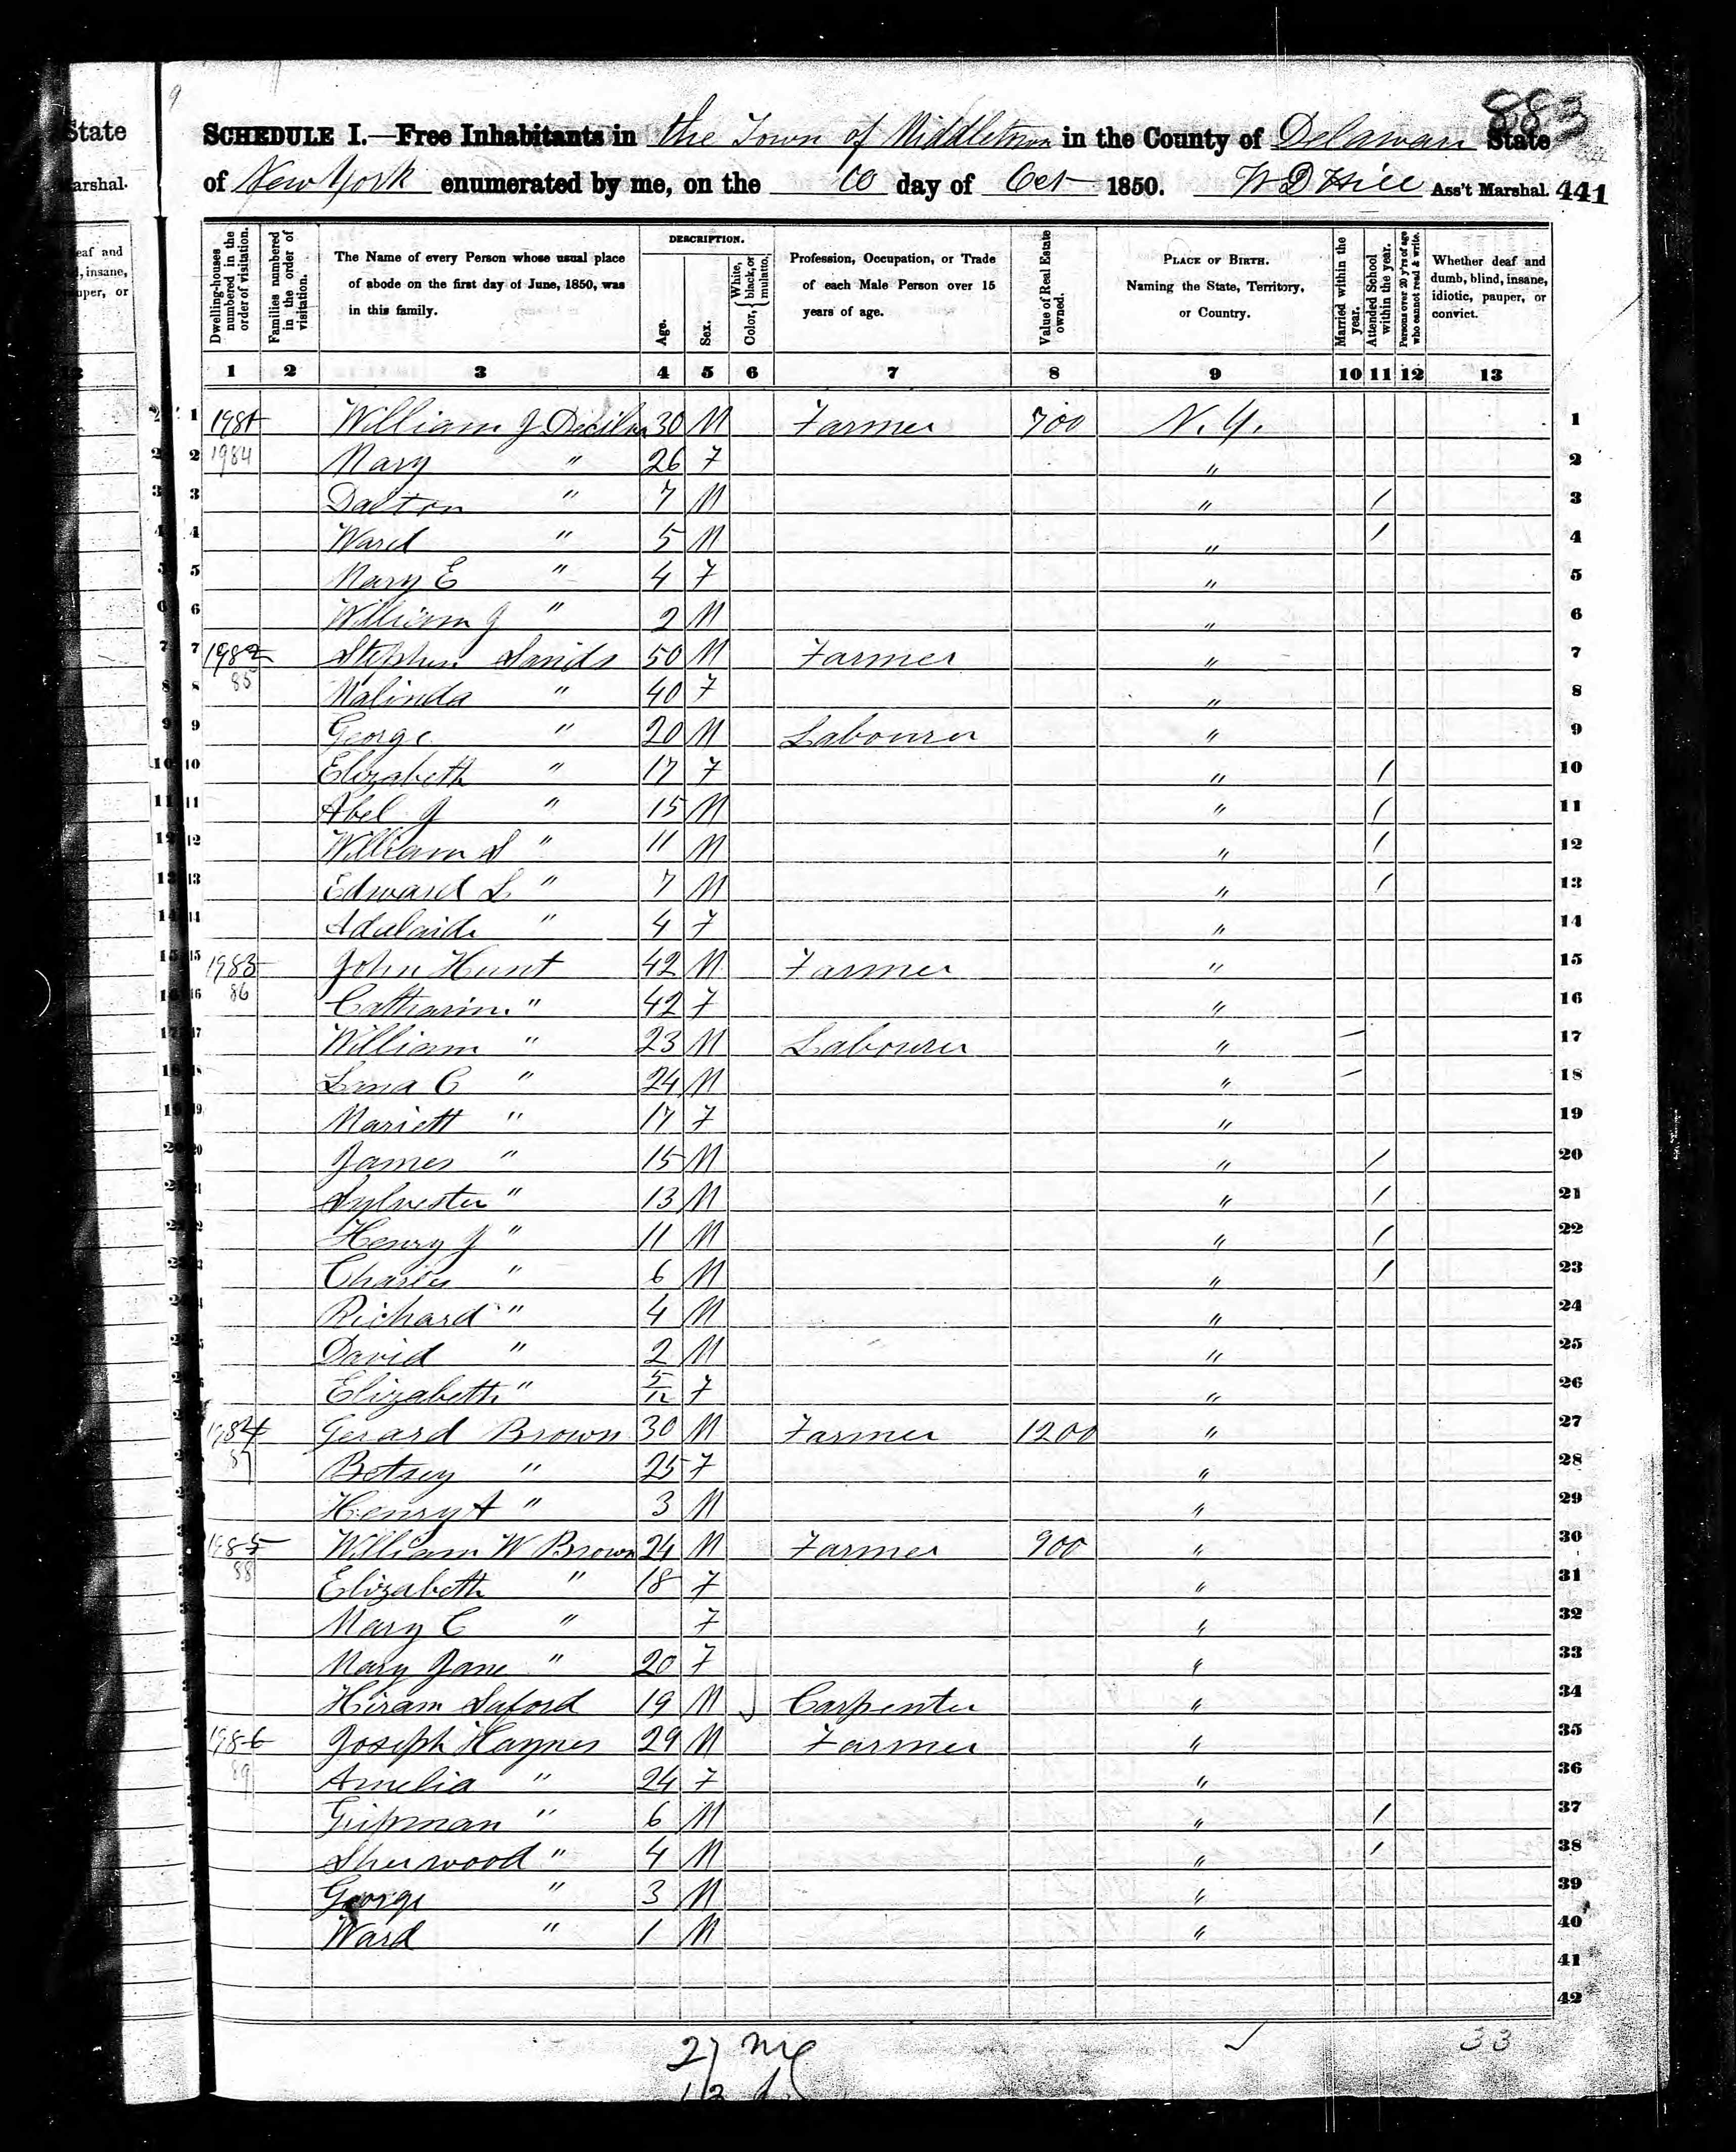 883
SCHEDULE I.—Free Inhabitants in the Town of Middletown in the County of Delaware State
of New York enumerated by me, on the 10 day of Oct 1850. W D Hill Ass't Marshal. 441
State
Marshal.
Dwelling-houses numbered in the order of visitation.
Families numbered in the order of visitation.
The Name of every Person whose usual place of abode on the first day of June, 1850, was in this family.
DESCRIPTION.
Age.
Sex.
Color, { White, black, or mulatto.
Profession, Occupation, or Trade of each Male Person over 15 years of age.
Value of Real Estate owned.
PLACE OF BIRTH. Naming the State, Territory, or Country.
Married within the year.
Attended School within the year.
Persons over 20 y'rs of age who cannot read & write.
Whether deaf and dumb, blind, insane, idiotic, pauper, or convict.
1 2 3 4 5 6 7 8 9 10 11 12 13
1 1981 William J 30 M Farmer 700 N.Y. 1
2 1984 Mary " 26 F " 2
3 Dalton " 7 M " / 3
4 Ward " 5 M " / 4
5 Mary E " 4 F " 5
6 William J " 2 M " 6
7 1982 Stephen Sands 50 M Farmer " 7
8 85 Malinda " 40 F " 8
9 George " 20 M Labourer " 9
10 Elizabeth " 17 F " / 10
11 Abel J " 15 M " / 11
12 William S " 11 M " / 12
13 Edward L " 7 M " / 13
14 Adelaide " 4 F " 14
15 1983 John Hunt 42 M Farmer " 15
16 86 Catharine " 42 F " 16
17 William " 23 M Labourer " / 17
18 C " 24 M " / 18
19 Mariett " 17 F " 19
20 James " 15 M " / 20
21 Sylvester " 13 M " / 21
22 Henry J " 11 M " / 22
23 Charles " 6 M " / 23
24 Richard " 4 M " 24
25 David " 2 M " 25
26 Elizabeth " 5/12 F " 26
1984 Gerard Brown 30 M Farmer 1200 " 27
87 Betsey " 25 F " 28
Henry A " 3 M " 29
1985 William W Brown 24 M Farmer 900 " 30
88 Elizabeth " 18 F " 31
Mary C " F " 32
Mary Jane " 20 F " 33
Hiram Saford 19 M Carpenter " 34
1986 Joseph Haynes 29 M Farmer " 35
89 Amelia " 24 F " 36
" 6 M " / 37
Sherwood " 4 M " / 38
George " 3 M " 39
Ward " 1 M " 40
41
42
27
33